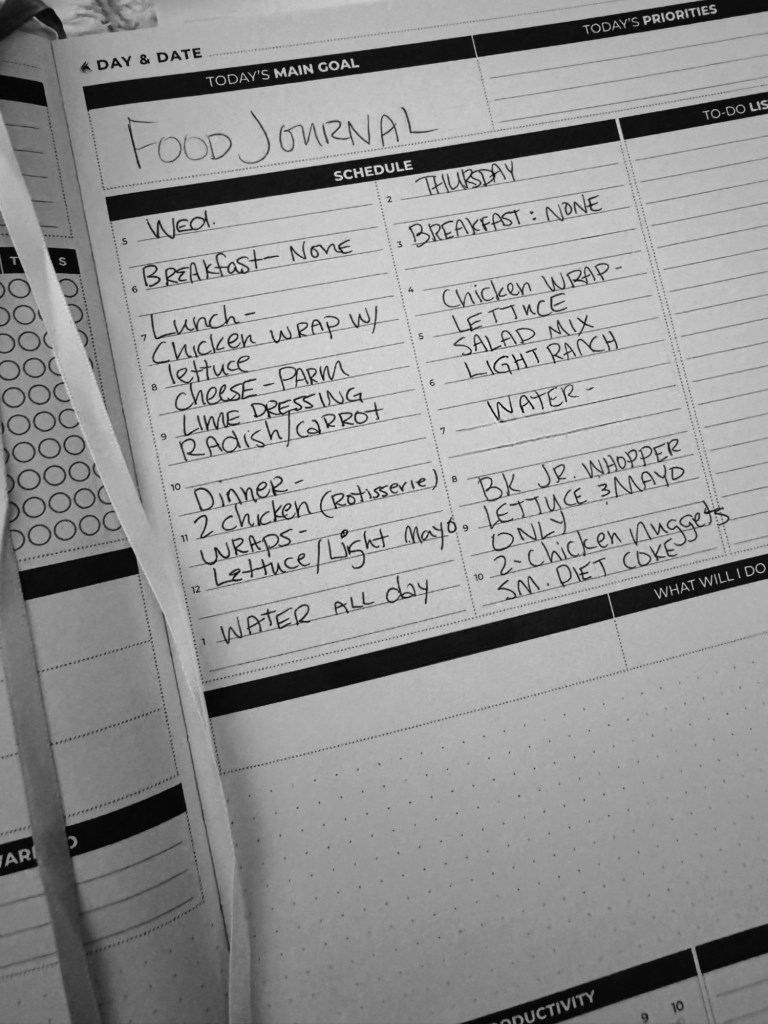 DAY & DATE
TODAY'S MAIN GOAL
TODAY'S PRIORITIES
FOOD JOURNAL
SCHEDULE
TO-DO LIS
5 Wed.
6 BREAKfast - NONE
7 Lunch -
Chicken WRAP W/
8 lettuce
cheese - PARM
9 LIME DRESSING
RAdish/CARROT
10 Dinner -
11 2 chicken (Rotisserie)
WRAPS -
12 Lettuce/Light Mayo
1 WATER ALL day
2 THURSDAY
3 BREAKFAST : NONE
4 Chicken WRAP -
LETTUCE
5 SALAD MIX
6 LIGHT RANCH
WATER -
7
8 BK JR. WHOPPER
LETTUCE & MAYO
9 ONLY
2 - Chicken Nuggets
10 SM. DIET COKE
WHAT WILL I DO
T S
9 10